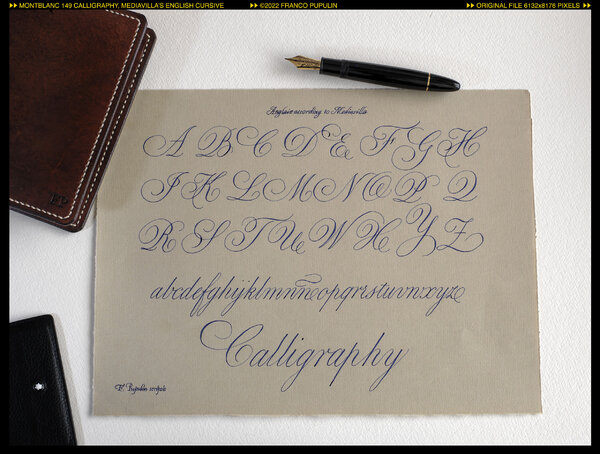 MONTBLANC 149 CALLIGRAPHY, MEDIAVILLA'S ENGLISH CURSIVE ©2022 FRANCO PUPULIN ORIGINAL FILE 6132x8176 PIXELS
Anglaise according to Mediavilla
A B C D E F G H
I K L M N O P Q
R S T U W X Y Z
abcdefghijklmnñopqrstuvnxyz
Calligraphy
F. Pupulin scripsit
FP